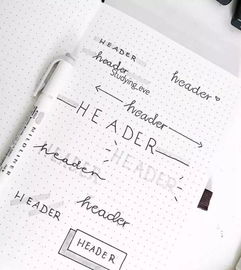 HEADER
header
Studying.eve
header
header
HEADER
HEADER
header
HEADER
header
HEADER
MILDLINER